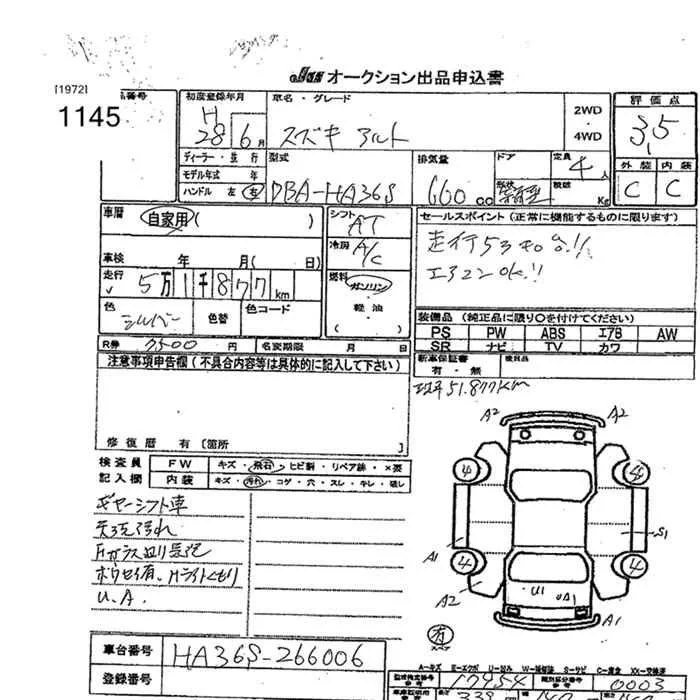 JU オークション出品申込書
[1972]
1145
初度登録年月
H 28 6月
車名・グレード
スズキ アルト
2WD
・
4WD
評価点
3.5
ディーラー・並行
モデル年式 年
ハンドル 左 右
型式
DBA-HA36S
排気量
660 cc
ドア
形状
定員
4人
積載
Kg
外装 内装
C C
車歴
自家用( )
車検 年 月( 日)
走行 5万1千877km
色
シルバー
色替
色コード
シフト
AT
冷房
A/C
燃料
ガソリン
・
軽油
・
( )
セールスポイント(正常に機能するものに限ります)
エアコンOK!!
装備品(純正品に限り○を付けてください)
PS PW ABS エアB AW
SR ナビ TV カワ
新車保証書
有・無
R券 7500円 名変期限 月 日
注意事項申告欄(不具合内容等は具体的に記入して下さい)
51.877km
修復歴 有〔箇所 〕
検査員
記入欄
FW キズ・飛石・ヒビ割・リペア跡・×要
内装 キズ・汚れ・コゲ・穴・スレ・キレ・残し
ギヤーシフト車
天張汚れ
ボウセイ有、Hライトくもり
U.A.
A2 A2
4 4
A1 S1
4 4
A2 U1 A1
A1
有
スペア
車台番号 HA36S-266006
登録番号
A-キズ E-エクボ U-凹み W-補修跡 S-サビ C-腐食 XX-交換済
17954
0003